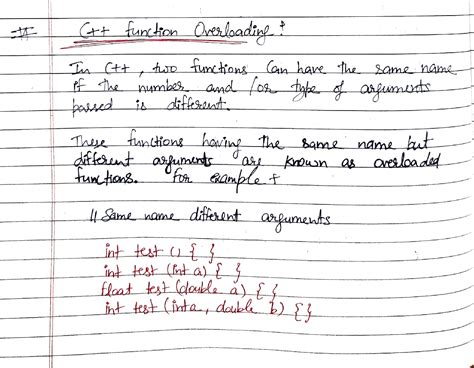 # C++ function Overloading :
In C++, two functions can have the same name
if the number and /or type of arguments
passed is different.
These functions having the same name but
different arguments are known as overloaded
functions. for example :
// Same name different arguments
int test () { }
int test (int a) { }
float test (double a) { }
int test (int a, double b) { }